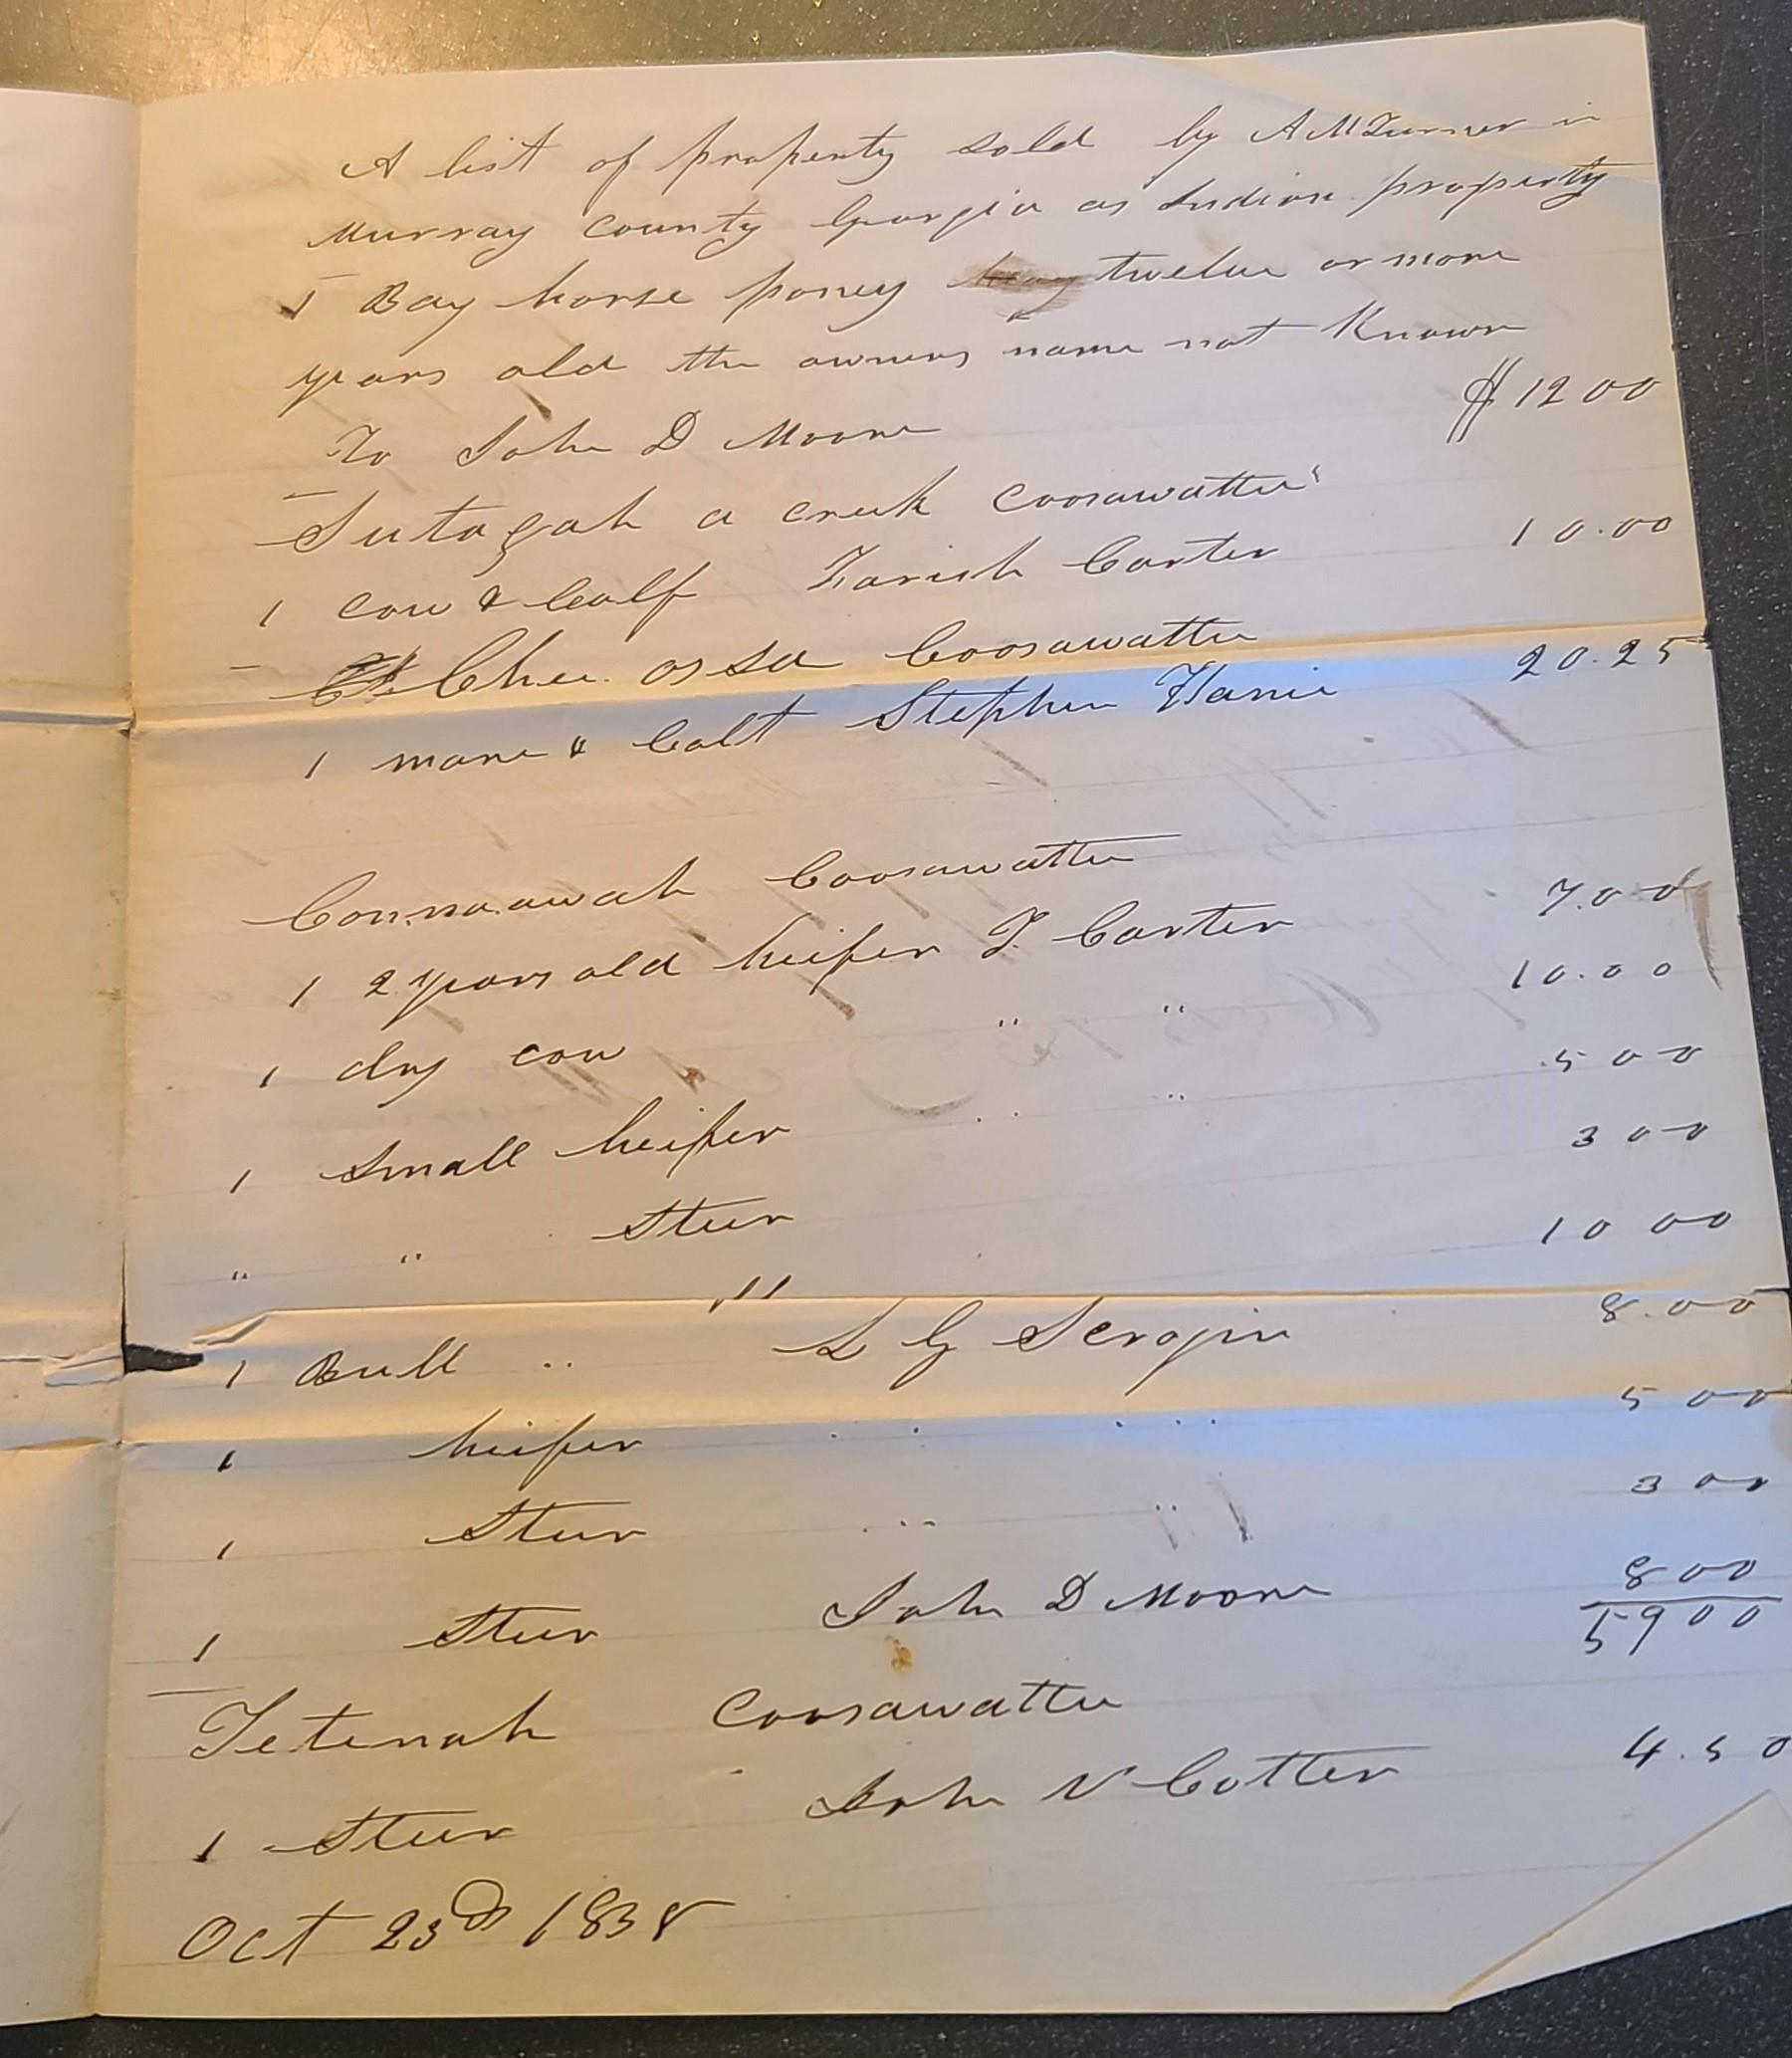 A list of property sold by A M Turner in
Murray County Georgia as Indian property
1 Bay horse poney twelve or more
years old the owners name not Known
To John D Moore $12 00
Sutagah a creek Coosawattee
1 cow & Calf Farish Carter 10.00
Chee. os sa Coosawattee
1 mare & Colt Stephen 20.25
Con.na.awah Coosawattee
1 2 years old heifer F. Carter 7.00
1 dry cow " " 10.00
1 Small heifer " " 5 00
" " Steer 3 00
" 10 00
1 Bull " L G Scrogin 8.00
1 heifer " " 5 00
1 Steer " " 3 00
1 Steer John D Moore 8 00
59 00
Tetenah Coosawattee
1 Steer John N Cotter 4.50
Oct 23d 1838